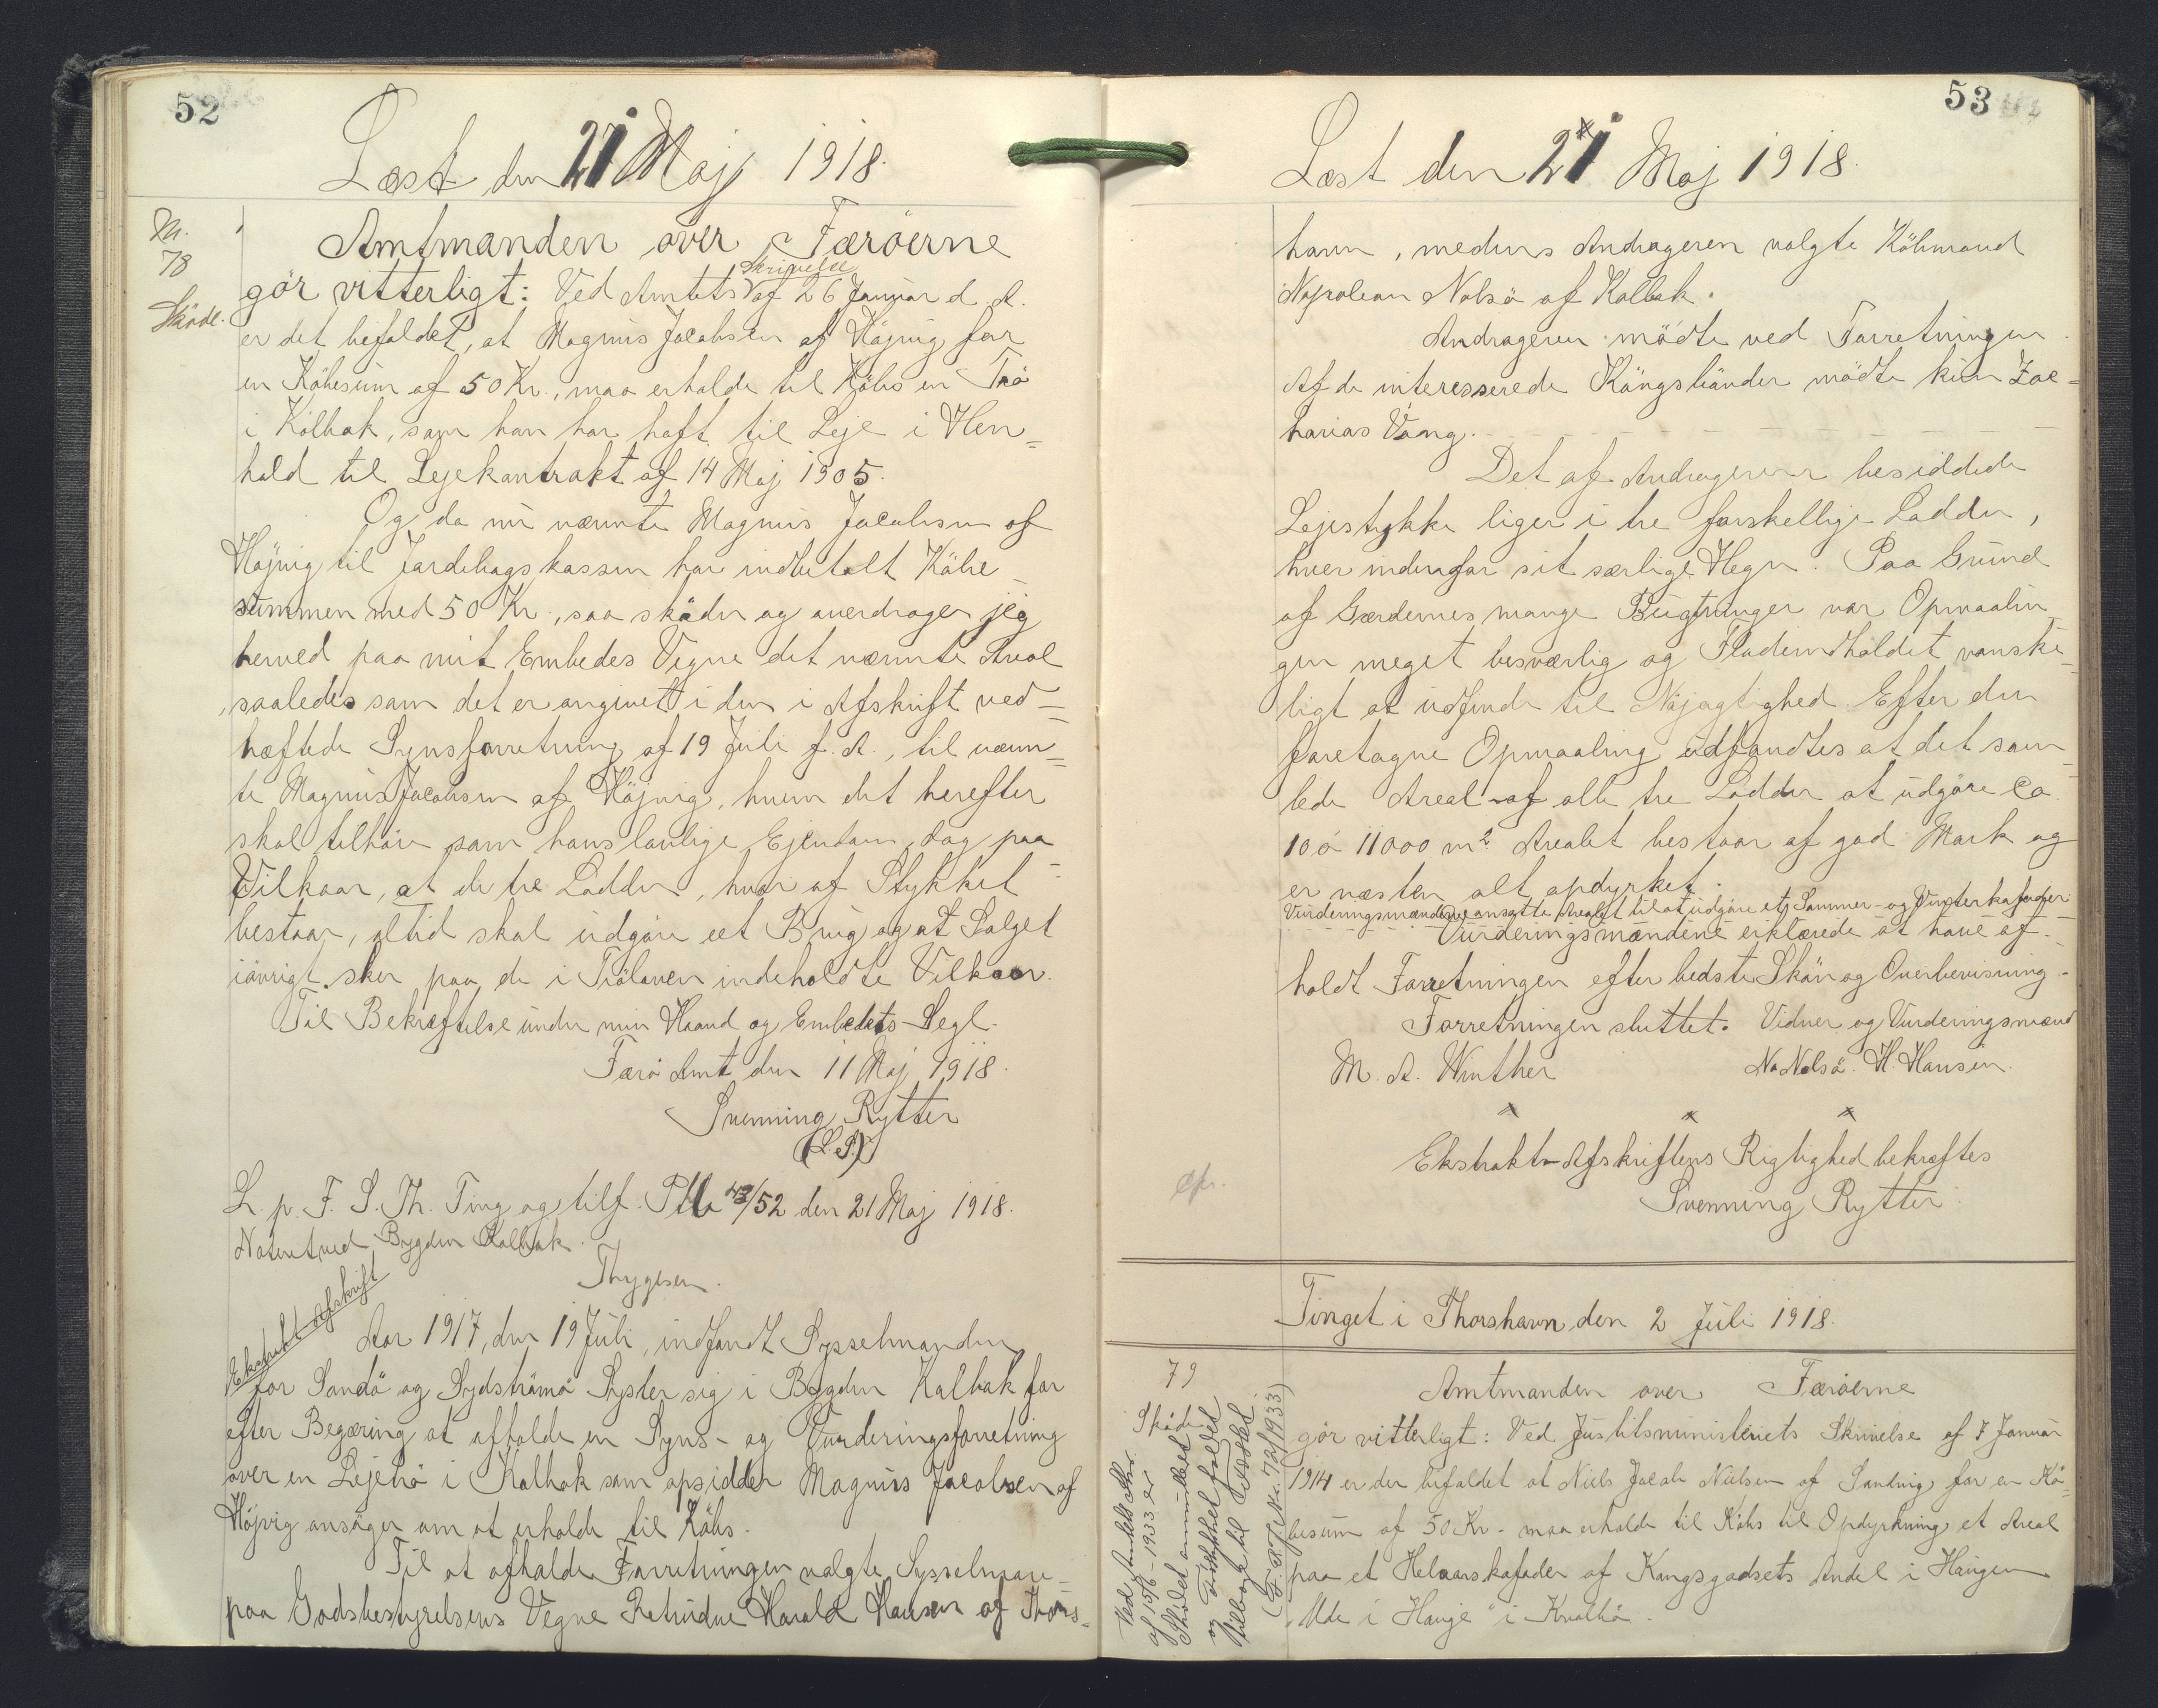 52
Læst den 21 Maj 1918.
N.
78
Skøde.
Amtmanden over Færöerne
gör vitterligt: Ved Amtets Skrivelse af 26 Januar d. A.
er det befaldet, at Magnus Jacobsen af Höjvig for
en Köbesum af 50 Kr., maa erholde til Köbs en Trö
i Kolbak, som han har haft til Leje i Hen=
hold til Lejekontrakt af 14 Maj 1905.
Og da nu nævnte Magnus Jacobsen af
Höjvig til Jordebogskassen har indbetalt Köbe=
summen med 50 Kr., saa sköder og overdrager jeg
herved paa mit Embedes Vegne det nævnte Areal
saaledes som det er angivet i den i Afskrift ved=
hæftede Synsforretning af 19 Juli f. A., til nævn=
te Magnus Jacobsen af Höjvig, hvem det herefter
skal tilhöre som hans lovlige Ejendom, dog paa
Vilkaar, at de tre Lodder, hvor af Stykket
bestaar, altid skal udgöre eet Brug og at Salget
iövrigt sker paa de i Tröloven indeholdte Vilkaar.
Til Bekræftelse under min Haand og Embedets Segl.
Færö Amt den 11 Maj 1918.
Svenning Rytter
(L.S.)
L. p. F. S. Th. Ting og tilf. Ptlo 43/52 den 21 Maj 1918.
Noteret ved Bygden Kalbak.
Thygesen.
Ekstrakt-Afskrift
Aar 1917, den 19 Juli, indfandt Sysselmanden
for Sandö og Sydströmö Sysler sig i Bygden Kalbak for
efter Begæring at afholde en Syns- og Vurderingsforretning
over en Lejetrö i Kalbak som opsidder Magnus Jacobsen af
Höjvig ansöger om at erholde til Köbs.
Til at afholde Forretningen valgte Sysselman=
paa Godsbestyrelsens Vegne Retvidne Harald Hansen af Thors=
53
Læst den 21 Maj 1918.
havn, medens Andrageren valgte Köbmand
Napolean Nolsö af Kalbak.
Andrageren mödte ved Forretningen.
Af de interesserede Kongsbönder mödte kun Zac=
harias Vang.
Det af Andrageren besiddede
Lejestykke liger i tre forskellige Lodder,
hver indenfor sit særlige Hegn. Paa Grund
af Gærdernes mange Bugtninger var Opmaalin=
gen meget besværlig og Fladeindholdet vanske=
ligt at udfinde til Nöjagtighed. Efter den
foretagne Opmaaling udfandtes at det sam=
lede Areal af alle tre Lodder at udgöre ca
10 à 11000 m². Arealet bestaar af god Mark og
er næsten alt opdyrket.
Vurderingsmændene ansatte Arealet til at udgöre et Sommer- og Vinterkofoder.
Vurderingsmændene erklærede at have af=
holdt Forretningen efter bedste Skön og Overbevisning.
Forretningen sluttet. Vidner og Vurderingsmænd
M. A. Winther Na Nolsö. H. Hansen.
x x x
Ekstrakt-Afskriftens Rigtighed bekræftes
Svenning Rytter.
Tinget i Thorshavn den 2 Juli 1918.
79
Sköde
Amtmanden over Færöerne
gör vitterligt: Ved Justitsministeriets Skrivelse af 7 Januar
1914 er der befaldet at Niels Jacob Nielsen af Sandvig for en Kö=
besum af 50 Kr. maa erholde til Köbs til Opdyrkning et Areal
paa et Helaarskofoder af Kongsgodsets Andel i Haugen
"Ude i Hauge" i Kvalbö.
Ved Amtets Skr.
af 15/6-1933 er
Skødet annulleret
og Trøstykket faldet
tilbage til Fæstet.
(Æ.R.T. Nr. 72/1933)